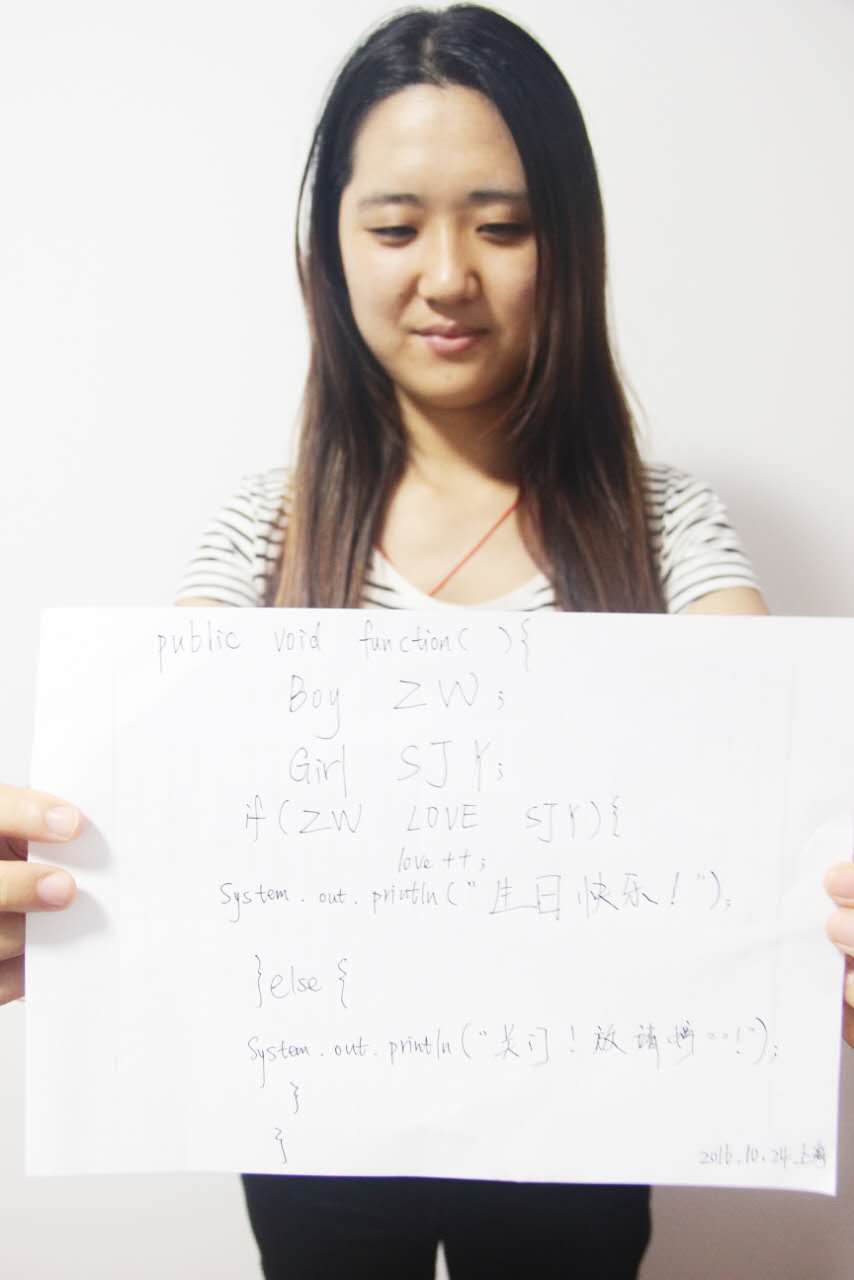 public void function( ){
Boy ZW;
Girl SJY;
if(ZW LOVE SJY){
love ++;
System.out.println("生日快乐!");
}else{
System.out.println("关门!放请婷...!");
}
}
2016.10.24 上海